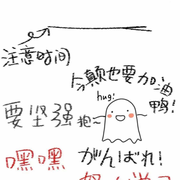 注意时间
今颠也要加油鸭!
hug!
要坚强
抱
嘿嘿
がんばれ!